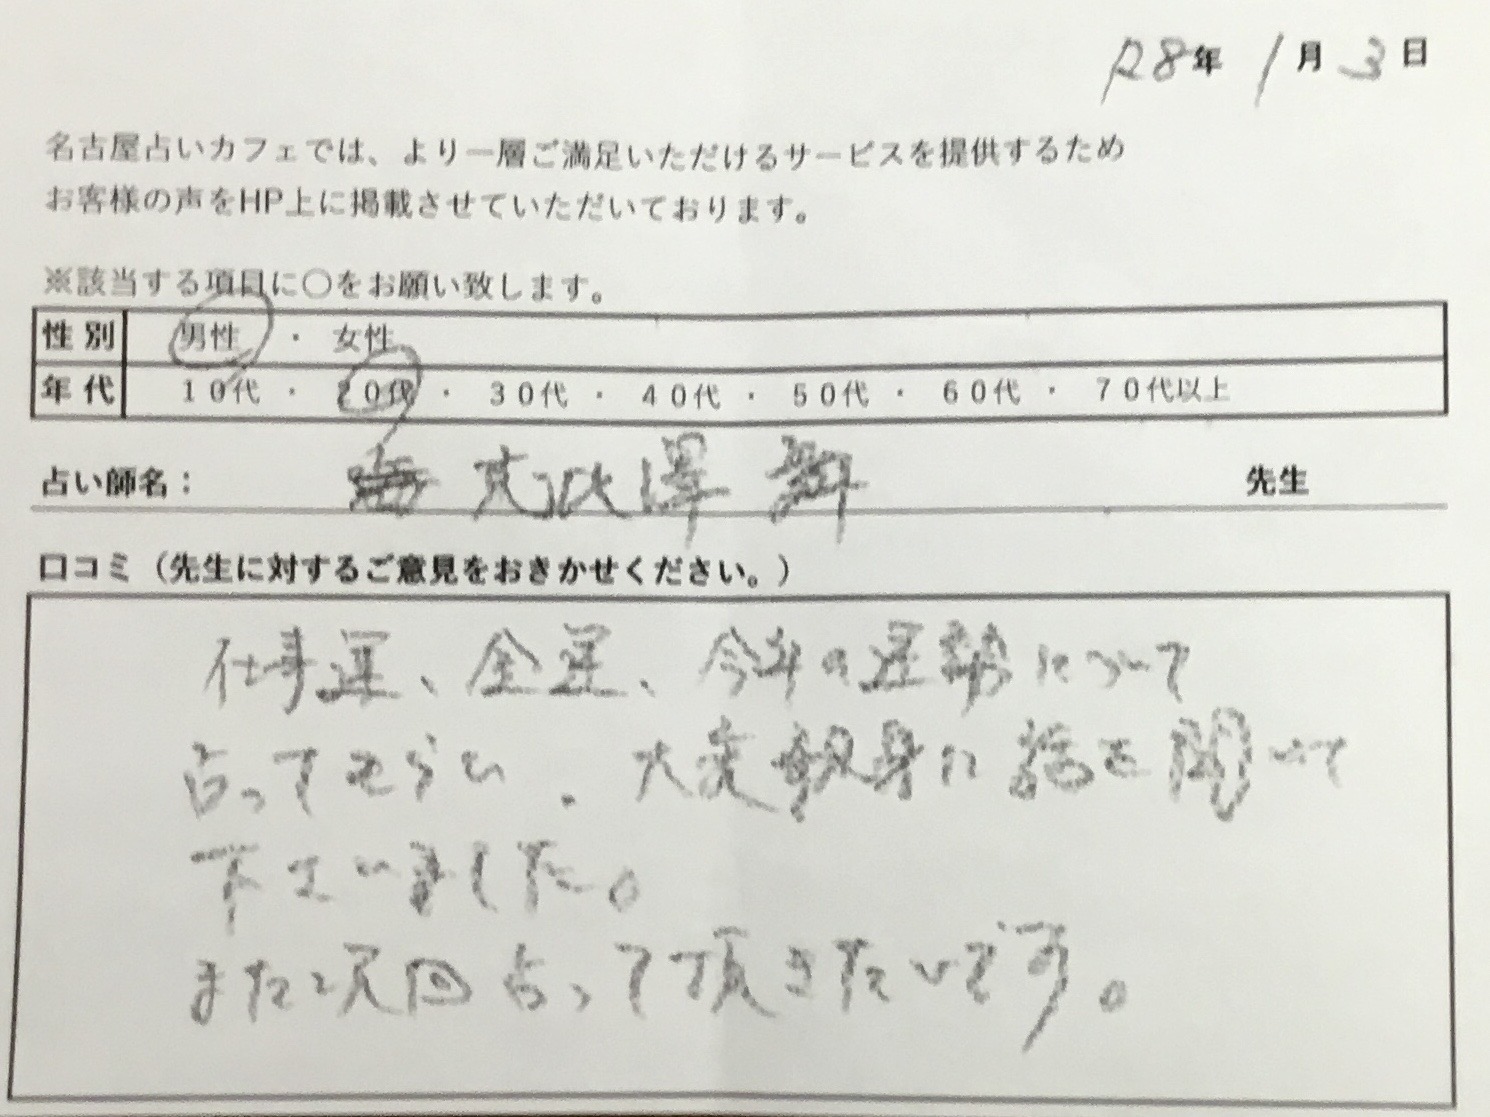 R8年 1月 3日
名古屋占いカフェでは、より一層ご満足いただけるサービスを提供するため
お客様の声をHP上に掲載させていただいております。
※該当する項目に〇をお願い致します。
性別 男性 ・ 女性
年代 10代 ・ 20代 ・ 30代 ・ 40代 ・ 50代 ・ 60代 ・ 70代以上
占い師名： 澤 舞 先生
口コミ（先生に対するご意見をおきかせください。）
仕事運、金運、今年の運勢について
占ってもらい、大変親身に話を聞いて
下さいました。
また次回占って頂きたいです。